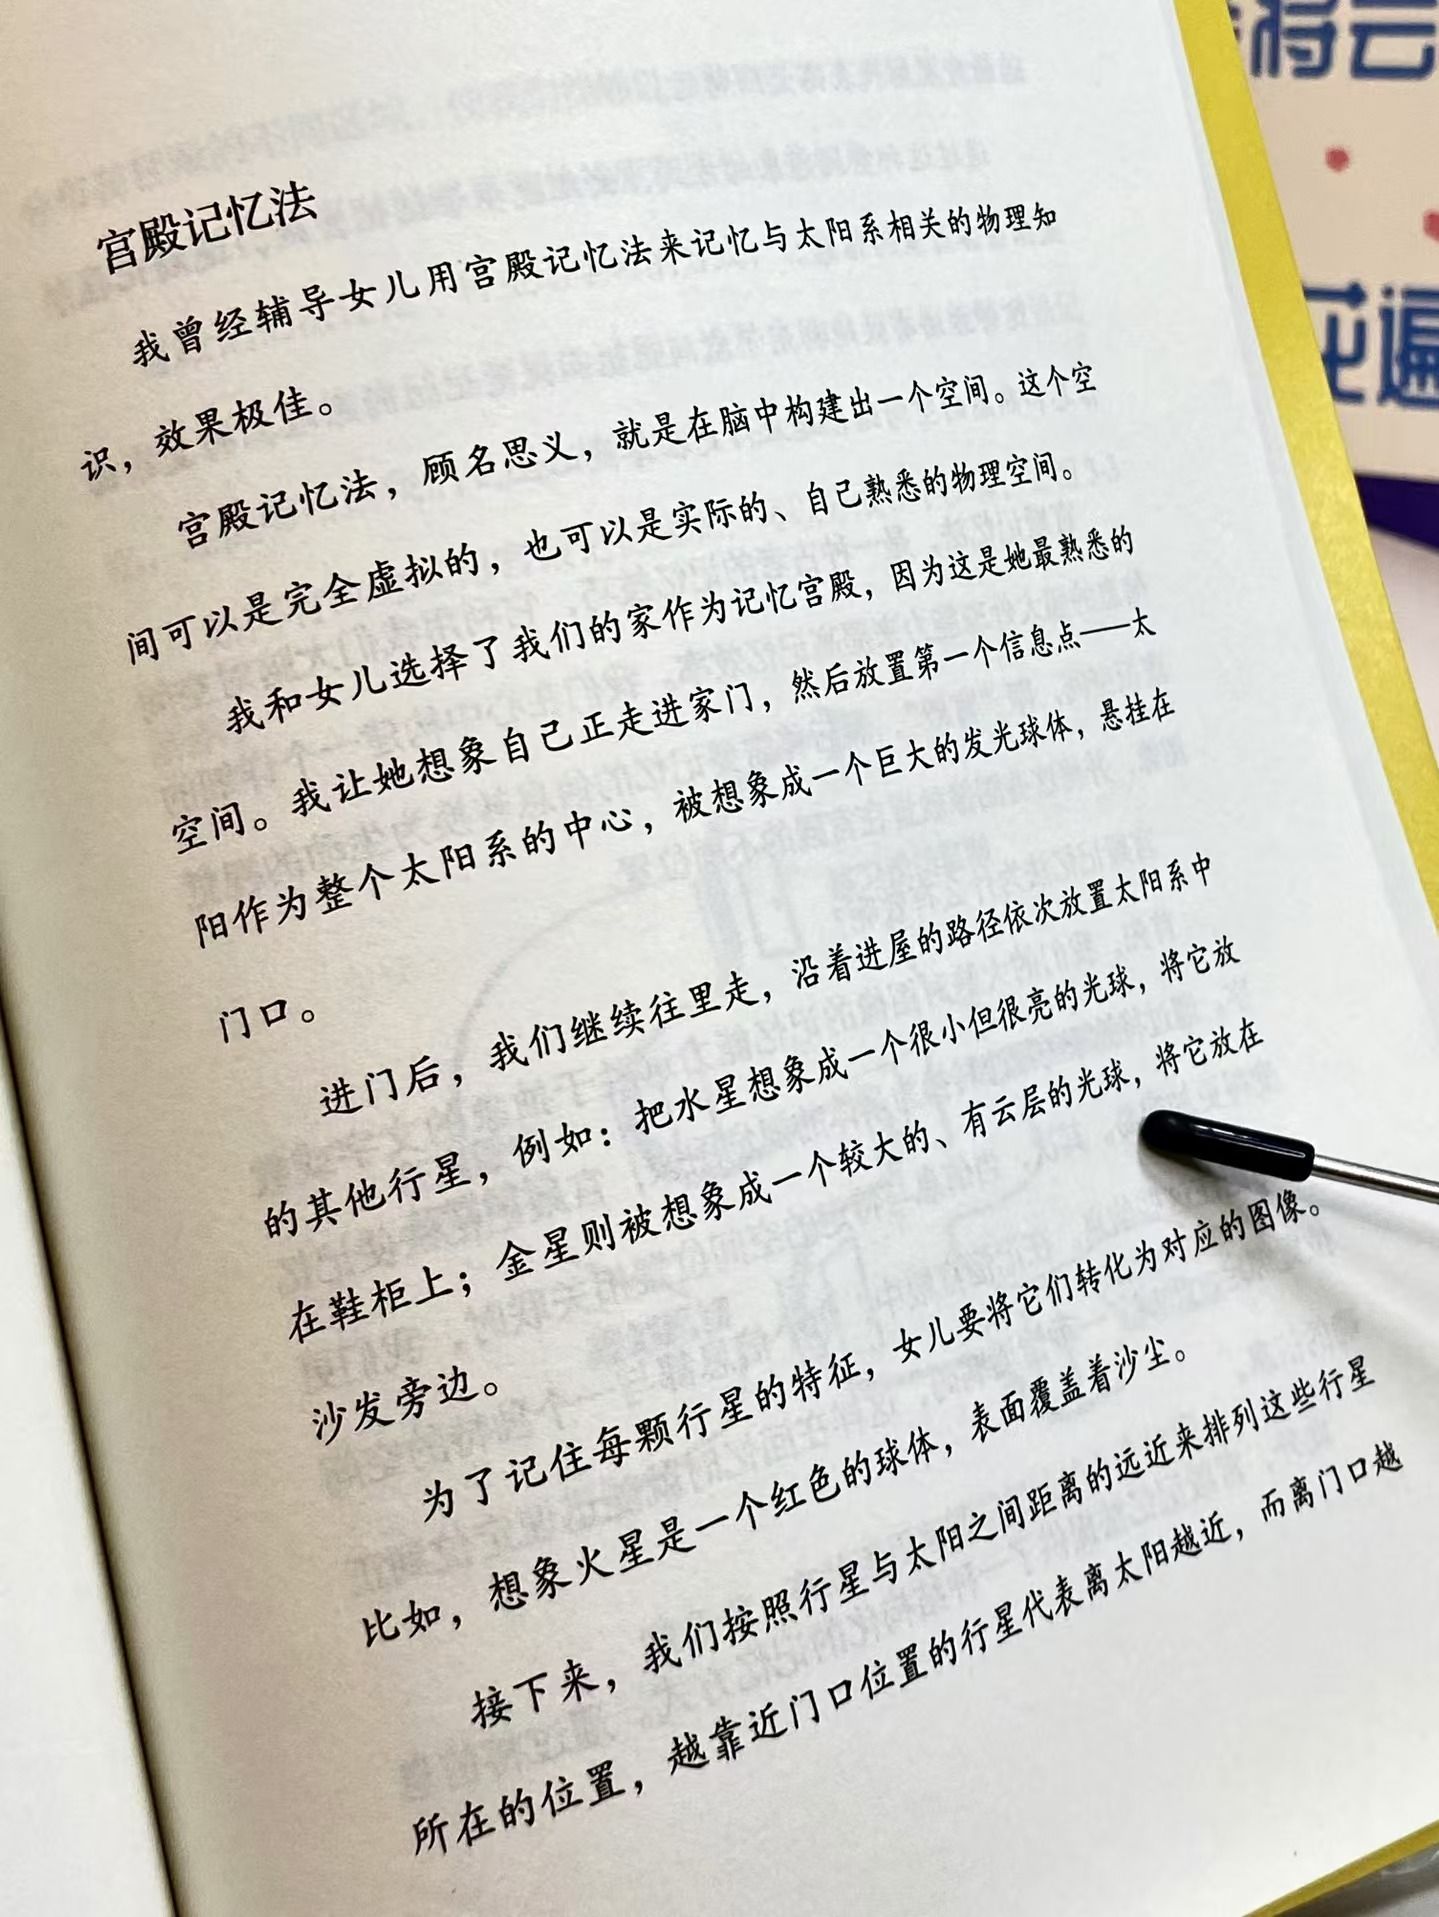 宫殿记忆法
我曾经辅导女儿用宫殿记忆法来记忆与太阳系相关的物理知
识，效果极佳。
宫殿记忆法，顾名思义，就是在脑中构建出一个空间。这个空
间可以是完全虚拟的，也可以是实际的、自己熟悉的物理空间。
我和女儿选择了我们的家作为记忆宫殿，因为这是她最熟悉的
空间。我让她想象自己正走进家门，然后放置第一个信息点——太
阳作为整个太阳系的中心，被想象成一个巨大的发光球体，悬挂在
门口。
进门后，我们继续往里走，沿着进屋的路径依次放置太阳系中
的其他行星，例如：把水星想象成一个很小但很亮的光球，将它放
在鞋柜上；金星则被想象成一个较大的、有云层的光球，将它放在
沙发旁边。
为了记住每颗行星的特征，女儿要将它们转化为对应的图像。
比如，想象火星是一个红色的球体，表面覆盖着沙尘。
接下来，我们按照行星与太阳之间距离的远近来排列这些行星
所在的位置，越靠近门口位置的行星代表离太阳越近，而离门口越
将云
花遍